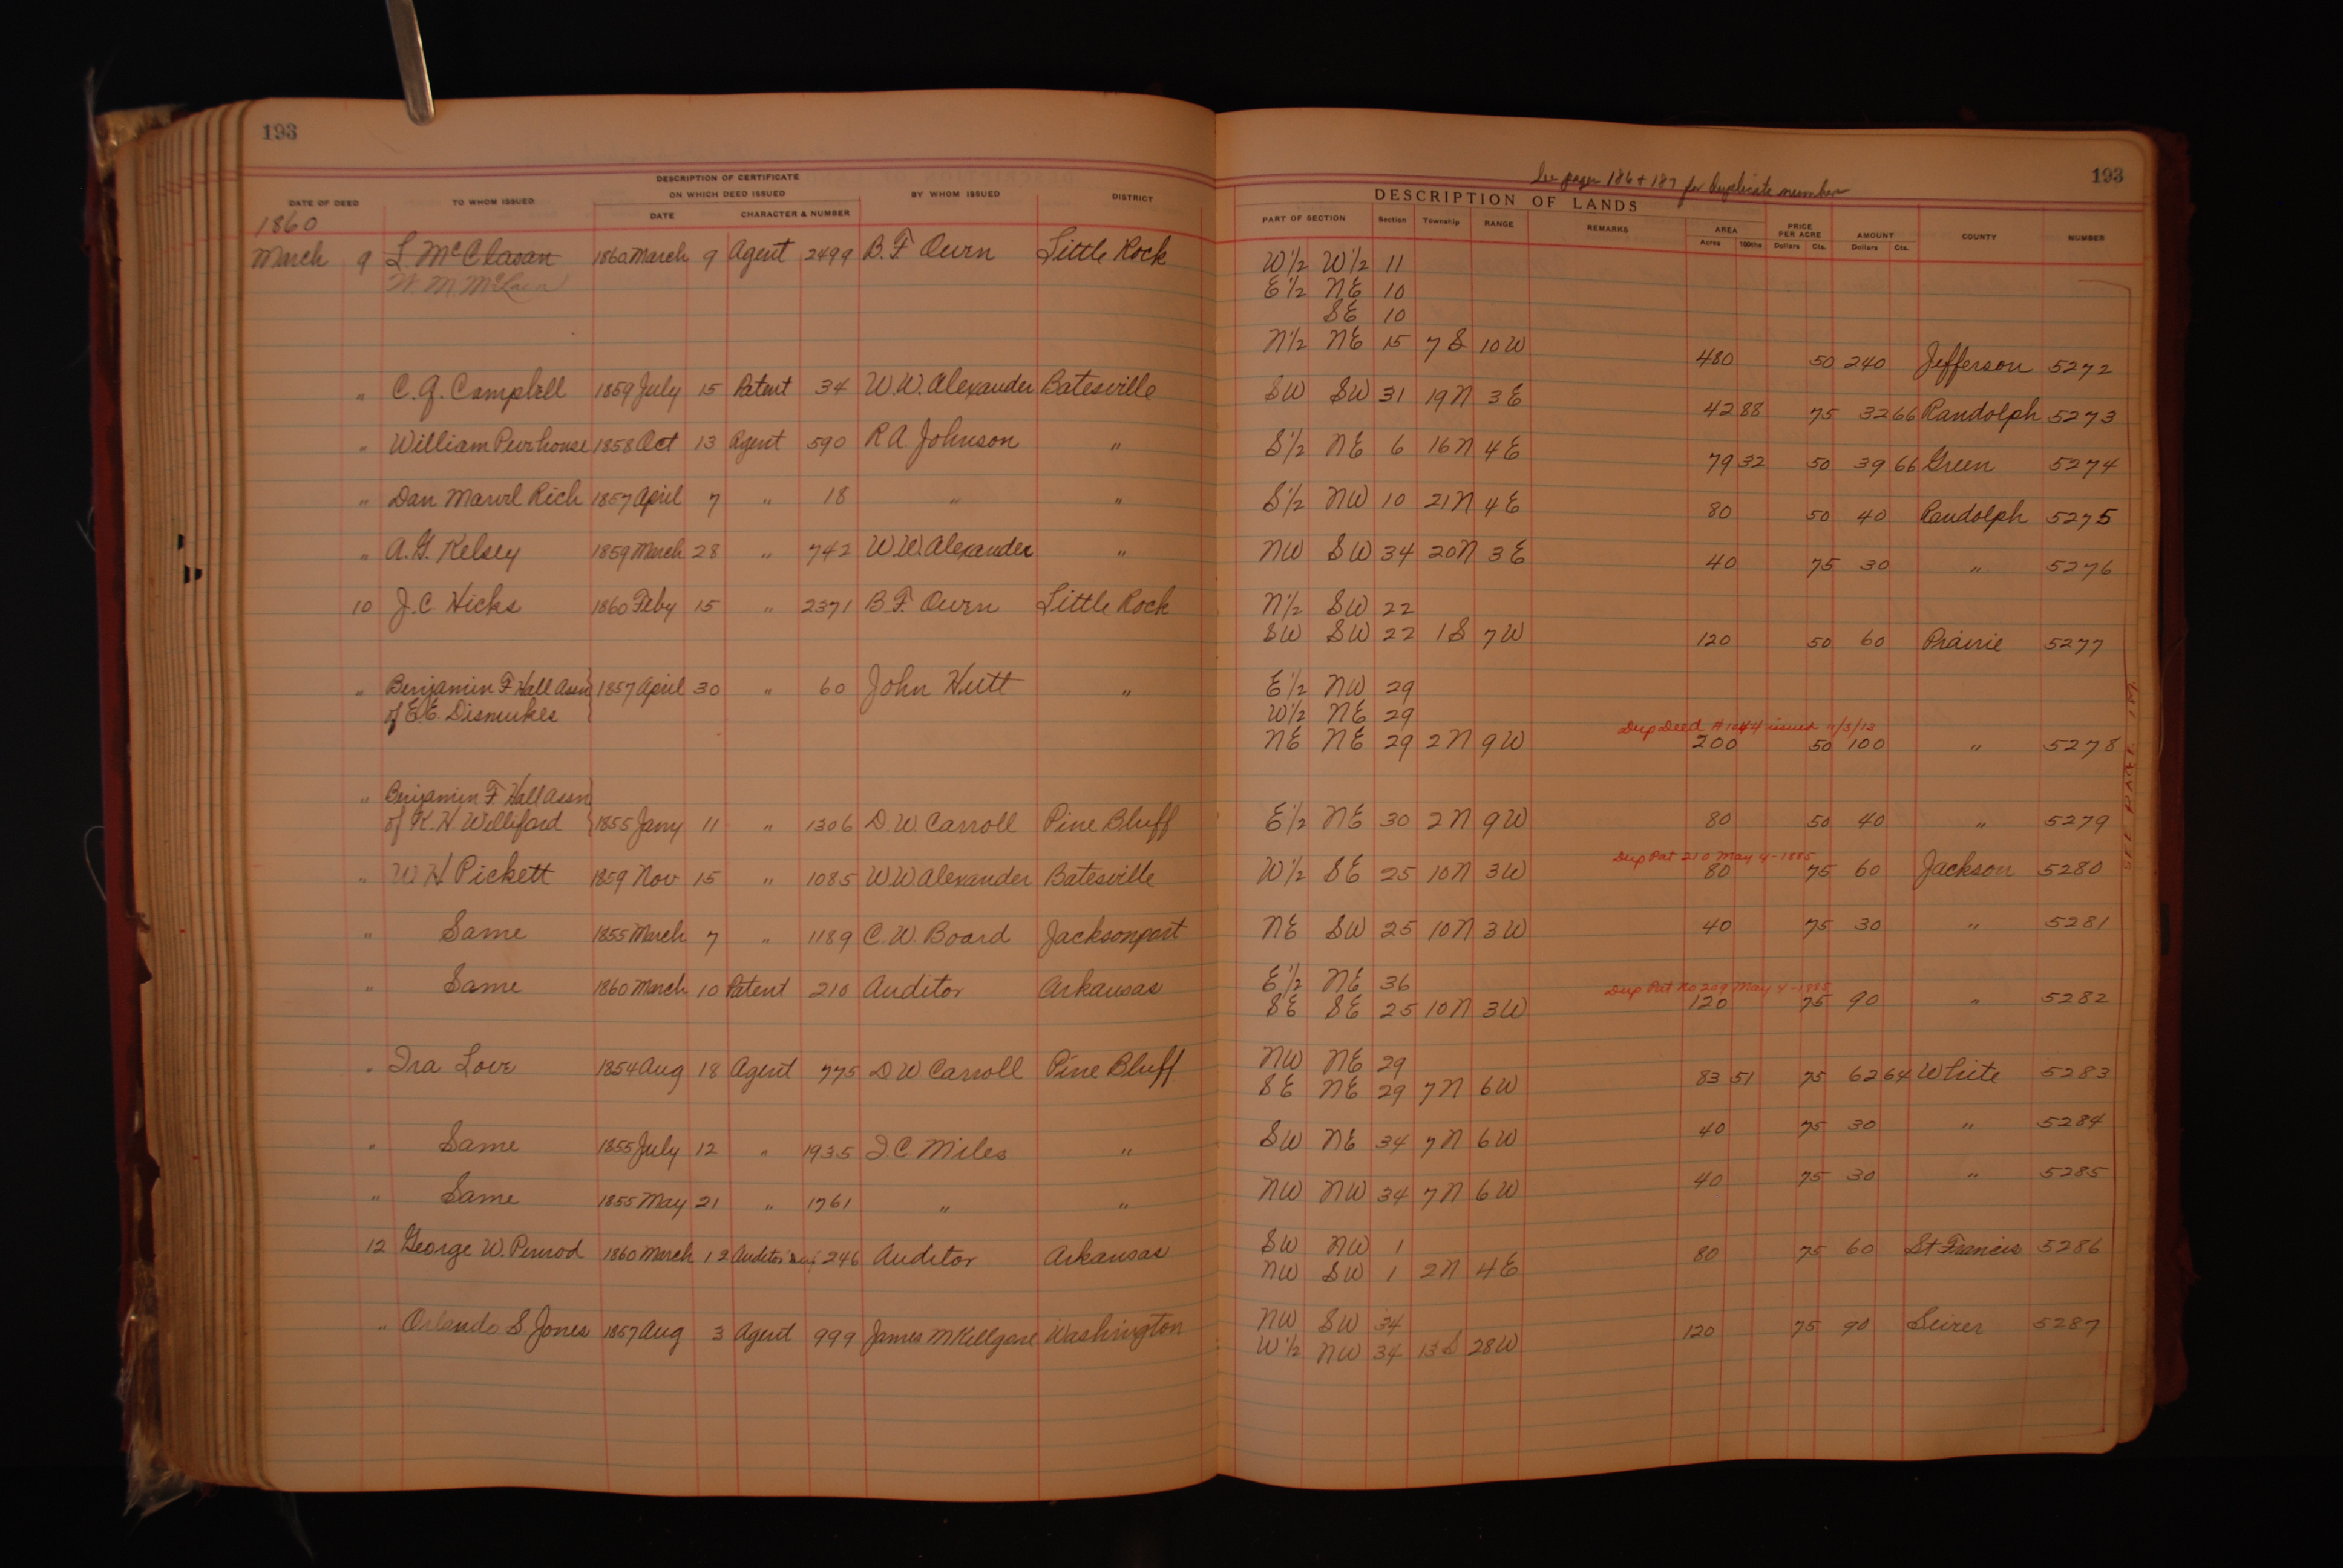 193
DESCRIPTION OF CERTIFICATE
ON WHICH DEED ISSUED
DATE OF DEED TO WHOM ISSUED DATE CHARACTER & NUMBER BY WHOM ISSUED DISTRICT
1860
March 9 L. McClasan 1860 March 9 Agent 2499 B. F. Owen Little Rock
W. M. McLain
" C. J. Campbell 1859 July 15 Patent 34 W. W. Alexander Batesville
" William Peurhouse 1858 Oct 13 Agent 590 R A. Johnson "
" Dan Marvel Rich 1857 April 7 " 18 " "
" A. G. Kelsey 1859 March 28 " 742 W. W. Alexander "
10 J. C. Hicks 1860 Feby 15 " 2371 B. F. Owen Little Rock
" Benjamin F Hall Assn 1857 April 30 " 60 John Hutt "
of E. E. Dismukes
" Benjamin F Hall Assn
of K. H. Williford 1855 Jany 11 " 1306 D. W. Carroll Pine Bluff
" W H Pickett 1859 Nov 15 " 1085 W W Alexander Batesville
" Same 1855 March 7 " 1189 C. W. Board Jacksonport
" Same 1860 March 10 Patent 210 Auditor Arkansas
" Ira Love 1854 Aug 18 Agent 775 D W Carroll Pine Bluff
" Same 1855 July 12 " 1935 J. C. Miles "
" Same 1855 May 21 " 1761 " "
12 George W. Penrod 1860 March 12 Auditor 246 Auditor Arkansas
" Orlando S Jones 1857 Aug 3 Agent 999 James M Killgore Washington
See pages 186 & 187 for duplicate number
193
DESCRIPTION OF LANDS
PART OF SECTION Section Township RANGE REMARKS AREA PRICE PER ACRE AMOUNT COUNTY NUMBER
Acres 100ths Dollars Cts. Dollars Cts.
W½ W½ 11
E½ NE 10
SE 10
N½ NE 15 7 S 10 W 480 50 240 Jefferson 5272
SW SW 31 19 N 3 E 42 88 75 32 66 Randolph 5273
S½ NE 6 16 N 4 E 79 32 50 39 66 Green 5274
S½ NW 10 21 N 4 E 80 50 40 Randolph 5275
NW SW 34 20 N 3 E 40 75 30 " 5276
N½ SW 22
SW SW 22 1 S 7 W 120 50 60 Prairie 5277
E½ NW 29
W½ NE 29
Dup Deed # 1044 issued 11/3/13
NE NE 29 2 N 9 W 200 50 100 " 5278
E½ NE 30 2 N 9 W 80 50 40 " 5279
Dup Pat 210 May 4-1885
W½ SE 25 10 N 3 W 80 75 60 Jackson 5280
NE SW 25 10 N 3 W 40 75 30 " 5281
E½ NE 36
Dup Pat No 209 May 4-1885
SE SE 25 10 N 3 W 120 75 90 " 5282
NW NE 29
SE NE 29 7 N 6 W 83 51 75 62 64 White 5283
SW NE 34 7 N 6 W 40 75 30 " 5284
NW NW 34 7 N 6 W 40 75 30 " 5285
SW NW 1
NW SW 1 2 N 4 E 80 75 60 St Francis 5286
NW SW 34
W½ NW 34 13 S 28 W 120 75 90 Seiver 5287
SEE PAGE 187